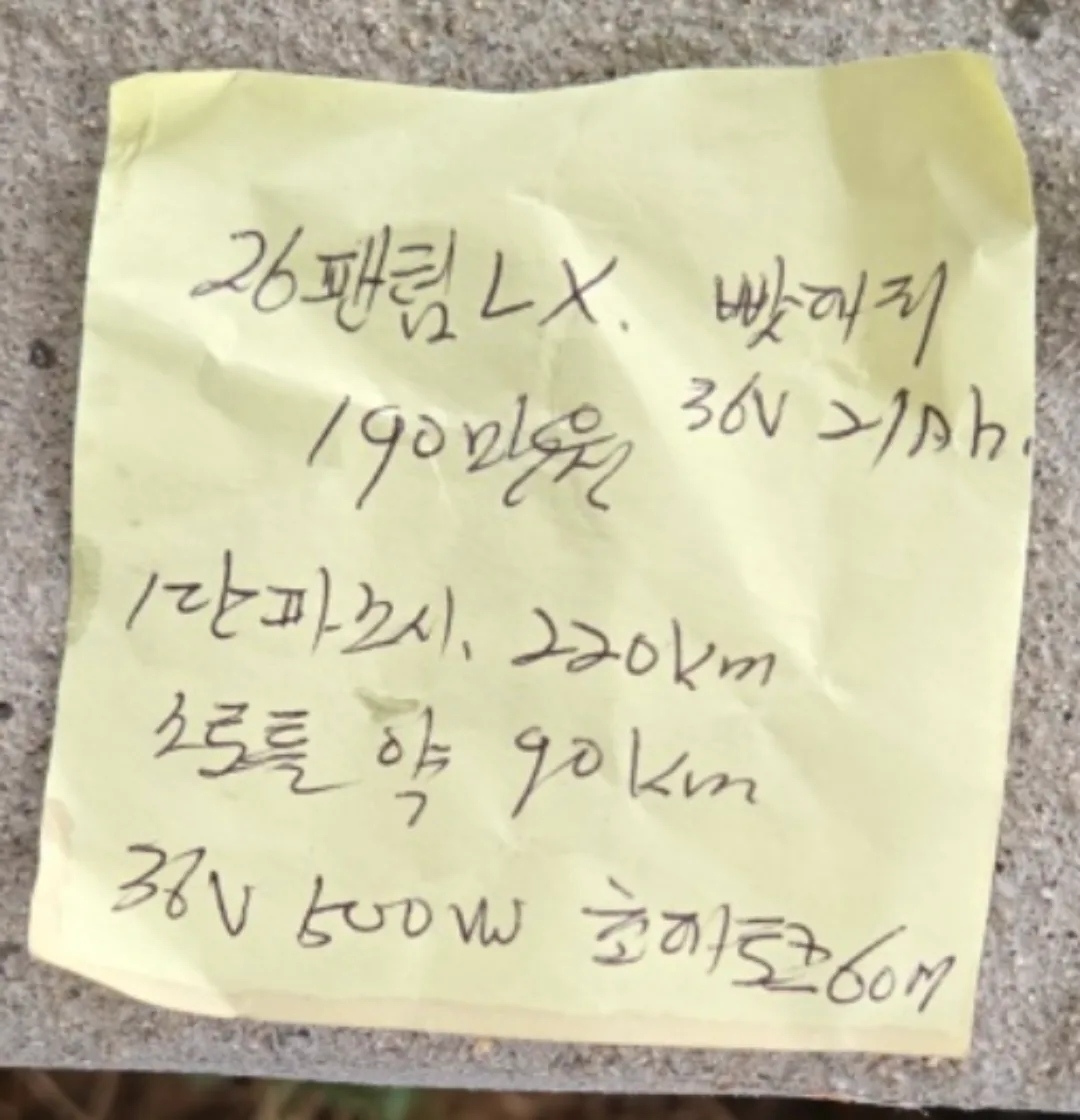 26팬텀 LX. 빳데리
190만원 36V 21Ah.
1단파스시. 220km
스로틀 약 90km
36V 500W 초대토크 60M